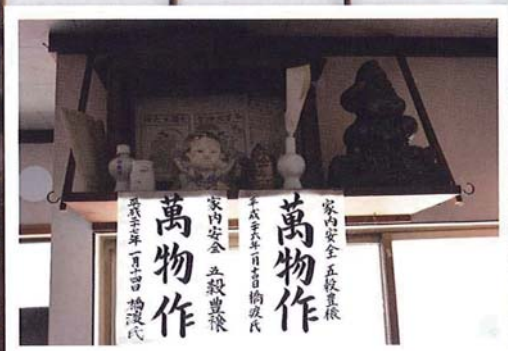 家内安全 五穀豊穣
萬物作
平成二十六年一月十四日 橋渡氏
家内安全 五穀豊穣
萬物作
平成二十七年 一月十四日 橋渡氏